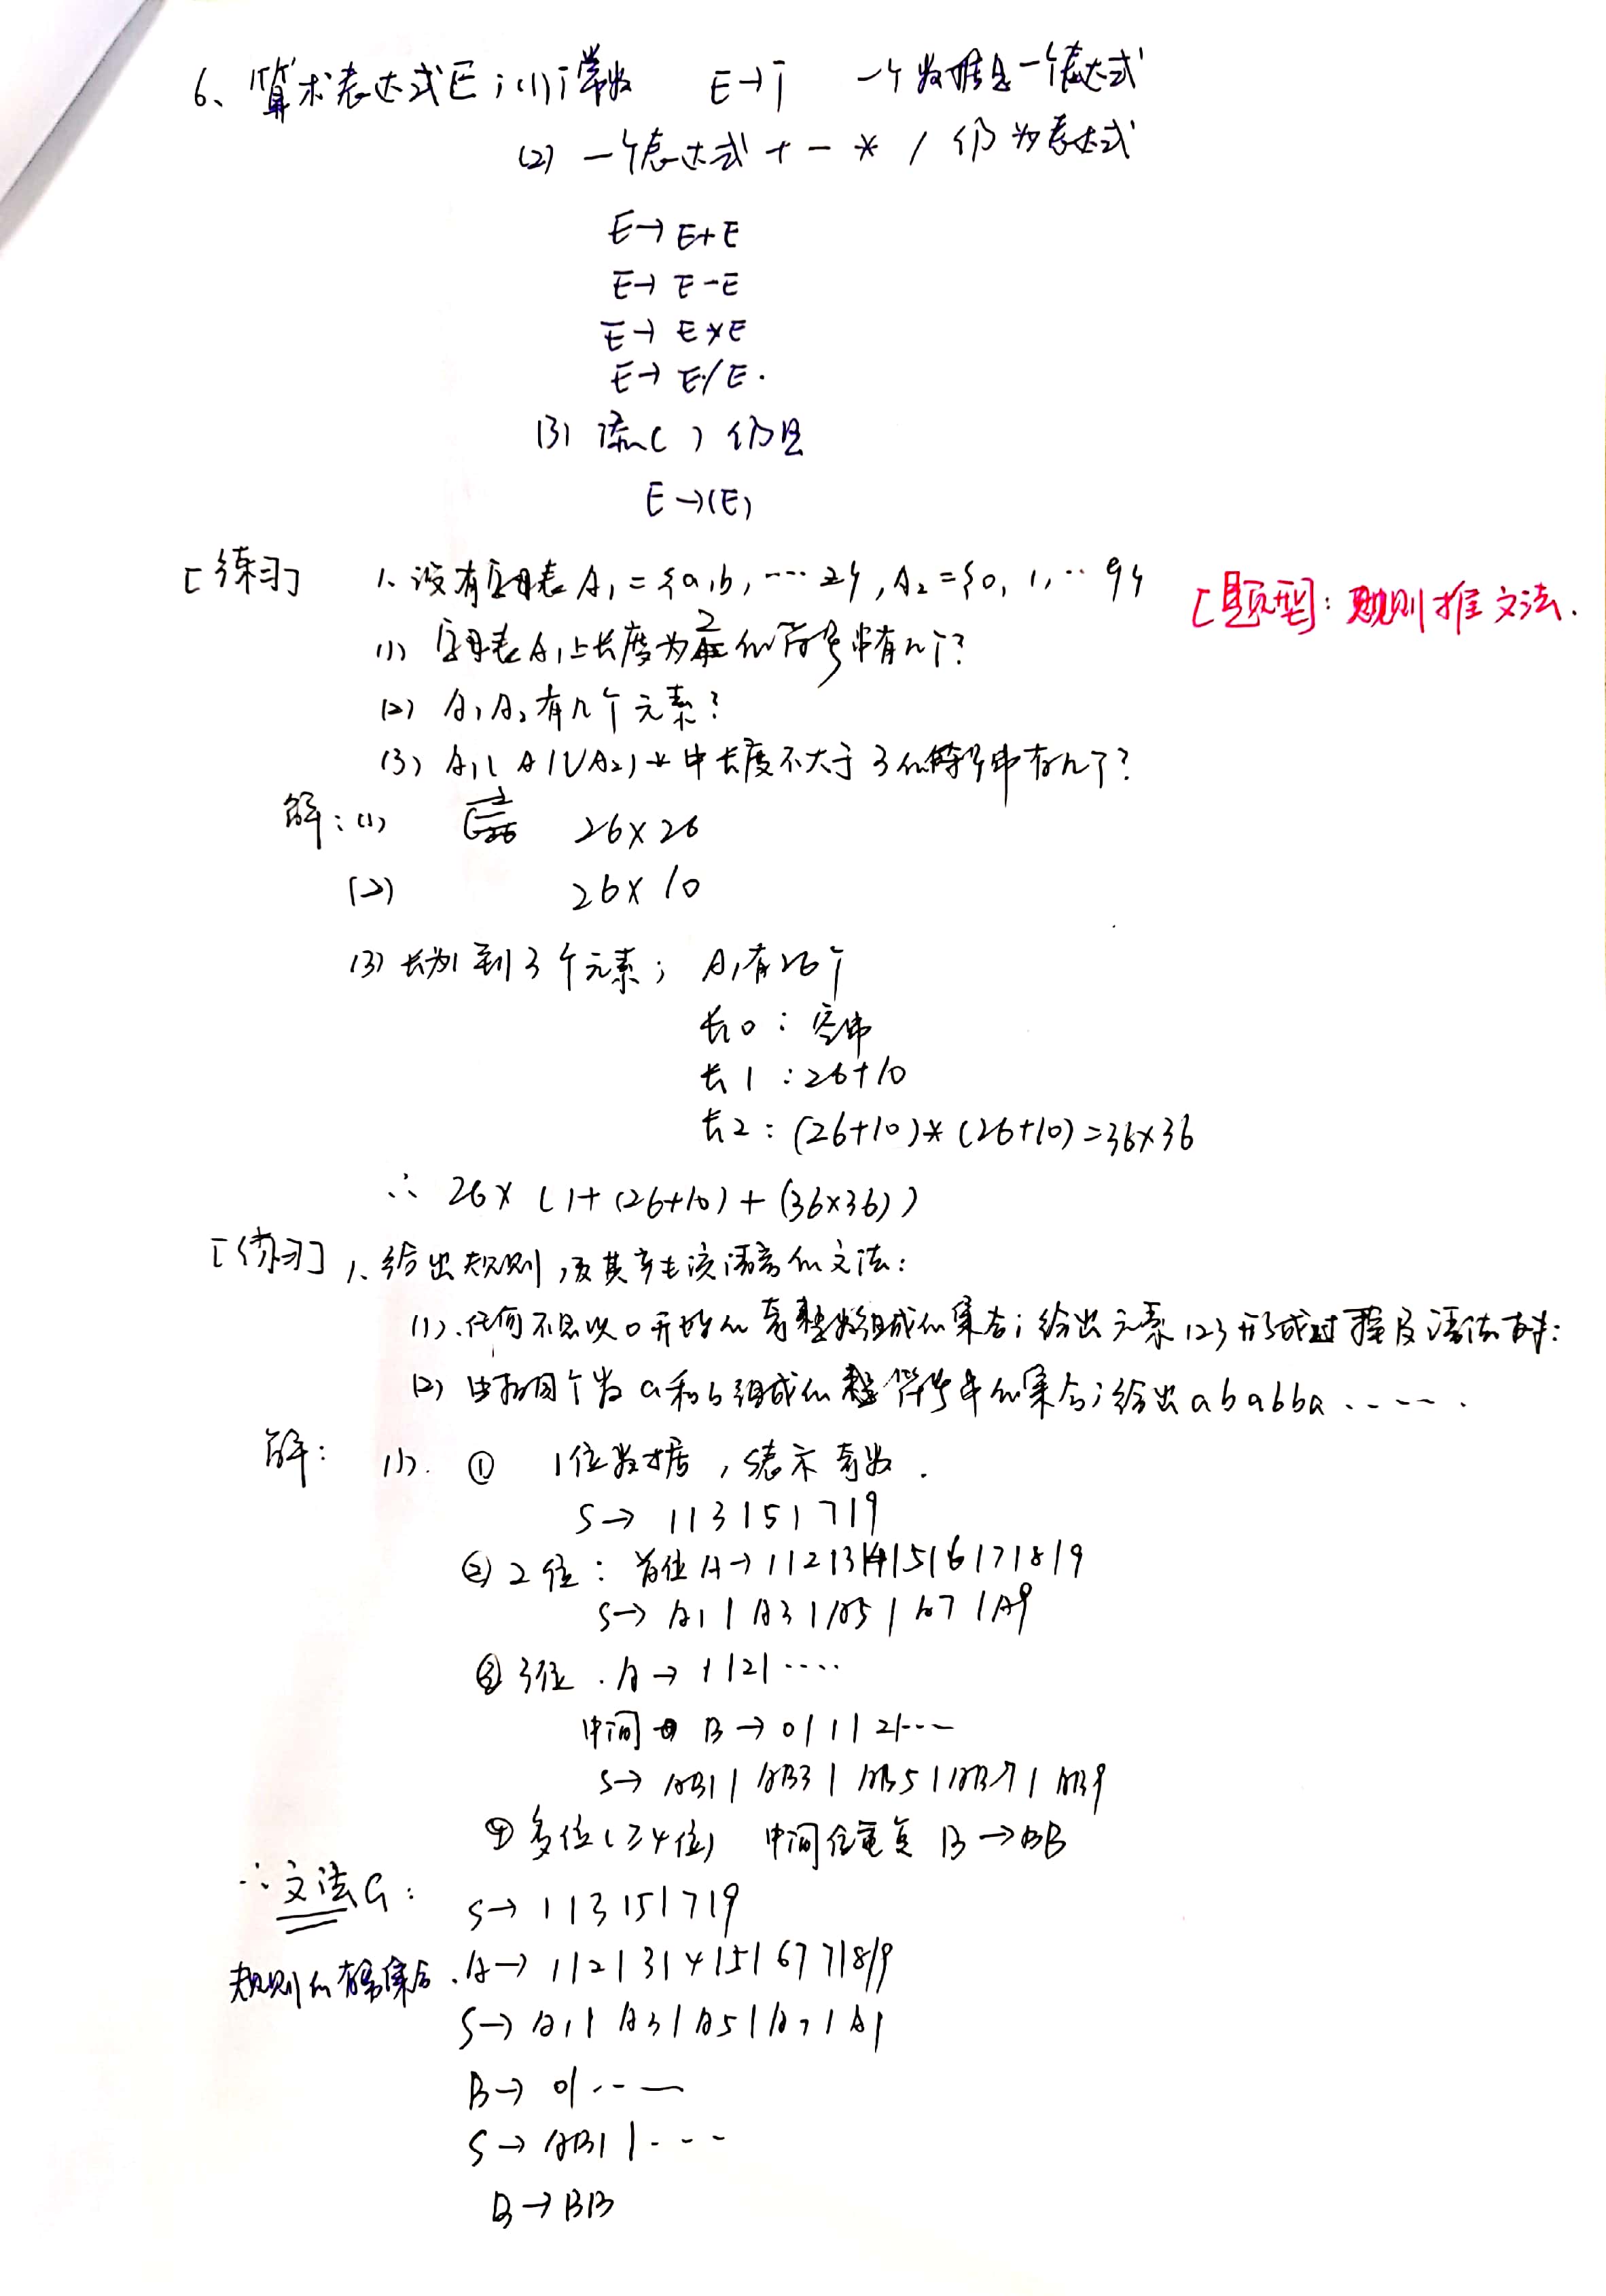 6、算术表达式E；(1) i常数 E→i 一个数据是一个表达式
(2) 一个表达式 + - * / 仍为表达式
E→E+E
E→E-E
E→E*E
E→E/E.
(3) 添( )仍是
E→(E)
[练习] 1、设有字母表A₁={a,b,…z},A₂={0,1,…9}
[题型]：规则推文法.
(1) 字母表A₁上长度为2的符号串有几个?
(2) A₁A₂有几个元素?
(3) A₁(A1∪A₂)*中长度不大于3的符号串有几个?
解：(1) 26×26
(2) 26×10
(3) 长为1到3个元素；A₁有26个
长0：空串
长1：26+10
长2：(26+10)*(26+10)=36×36
∴ 26×(1+(26+10)+(36×36))
[练习] 1、给出规则,及其产生该语言的文法：
(1).任何不是以0开始的奇整数组成的集合；给出元素123形成过程及语法树：
(2) 由相同个数a和b组成的符号串的集合；给出ababba.....
解： (1). ① 1位数据,S表示奇数.
S→1|3|5|7|9
② 2位：首位A→1|2|3|4|5|6|7|8|9
S→A1|A3|A5|A7|A9
③ 3位.A→1|2|....
中间 B→0|1|2|...
S→AB1|AB3|AB5|AB7|AB9
④ 多位(≥4位) 中间位重复 B→BB
∴文法G：S→1|3|5|7|9
规则的有穷集合.A→1|2|3|4|5|6|7|8|9
S→A1|A3|A5|A7|A9
B→0|...
S→AB1|...
B→BB